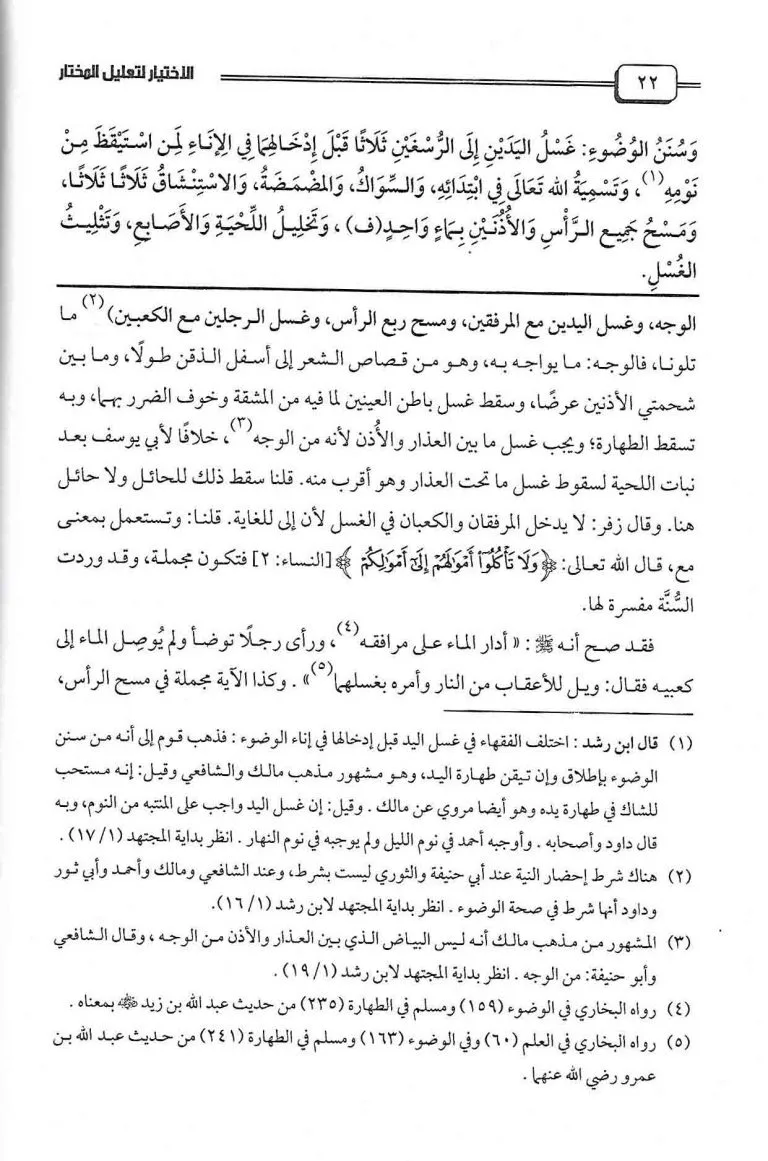 ٢٢
الاختيار لتعليل المختار
وَسُنَنُ الوُضُوءِ: غَسْلُ اليَدَيْنِ إِلَى الرُّسْغَيْنِ ثَلَاثًا قَبْلَ إِدْخَالِهِمَا فِي الإِنَاءِ لِمَنِ اسْتَيْقَظَ مِنْ
نَوْمِهِ(١)، وَتَسْمِيَةُ الله تَعَالَى فِي ابْتِدَائِهِ، وَالسِّوَاكُ، وَالمَضْمَضَةُ، وَالاسْتِنْشَاقُ ثَلَاثًا ثَلَاثًا،
وَمَسْحُ جَمِيعِ الرَّأْسِ وَالأُذُنَيْنِ بِمَاءٍ وَاحِدٍ(ف)، وَتَخْلِيلُ اللِّحْيَةِ وَالأَصَابِعِ، وَتَثْلِيثُ
الغُسْلِ.
الوجه، وغسل اليدين مع المرفقين، ومسح ربع الرأس، وغسل الرجلين مع الكعبين)(٢) ما
تلونا، فالوجه: ما يواجه به، وهو من قصاص الشعر إلى أسفل الذقن طولًا، وما بين
شحمتي الأذنين عرضًا، وسقط غسل باطن العينين لما فيه من المشقة وخوف الضرر بهما، وبه
تسقط الطهارة؛ ويجب غسل ما بين العذار والأُذن لأنه من الوجه(٣)، خلافًا لأبي يوسف بعد
نبات اللحية لسقوط غسل ما تحت العذار وهو أقرب منه. قلنا سقط ذلك للحائل ولا حائل
هنا. وقال زفر: لا يدخل المرفقان والكعبان في الغسل لأن إلى للغاية. قلنا: وتستعمل بمعنى
مع، قال الله تعالى: ﴿وَلَا تَأْكُلُوٓا۟ أَمْوَٰلَهُمْ إِلَىٰٓ أَمْوَٰلِكُمْ﴾ [النساء: ٢] فتكون مجملة، وقد وردت
السُّنَّة مفسرة لها.
فقد صح أنه ﷺ: «أدار الماء على مرافقه(٤)، ورأى رجلًا توضأ ولم يُوصِل الماء إلى
كعبيه فقال: ويل للأعقاب من النار وأمره بغسلهما(٥)». وكذا الآية مجملة في مسح الرأس،
(١) قال ابن رشد: اختلف الفقهاء في غسل اليد قبل إدخالها في إناء الوضوء: فذهب قوم إلى أنه من سنن
الوضوء بإطلاق وإن تيقن طهارة اليد، وهو مشهور مذهب مالك والشافعي وقيل: إنه مستحب
للشاك في طهارة يده وهو أيضا مروي عن مالك. وقيل: إن غسل اليد واجب على المنتبه من النوم، وبه
قال داود وأصحابه. وأوجبه أحمد في نوم الليل ولم يوجبه في نوم النهار. انظر بداية المجتهد (١/١٧).
(٢) هناك شرط إحضار النية عند أبي حنيفة والثوري ليست بشرط، وعند الشافعي ومالك وأحمد وأبي ثور
وداود أنها شرط في صحة الوضوء. انظر بداية المجتهد لابن رشد (١/١٦).
(٣) المشهور من مذهب مالك أنه ليس البياض الذي بين العذار والأذن من الوجه، وقال الشافعي
وأبو حنيفة: من الوجه. انظر بداية المجتهد لابن رشد (١/١٩).
(٤) رواه البخاري في الوضوء (١٥٩) ومسلم في الطهارة (٢٣٥) من حديث عبد الله بن زيد ﷺ بمعناه.
(٥) رواه البخاري في العلم (٦٠) وفي الوضوء (١٦٣) ومسلم في الطهارة (٢٤١) من حديث عبد الله بن
عمرو رضي الله عنهما.